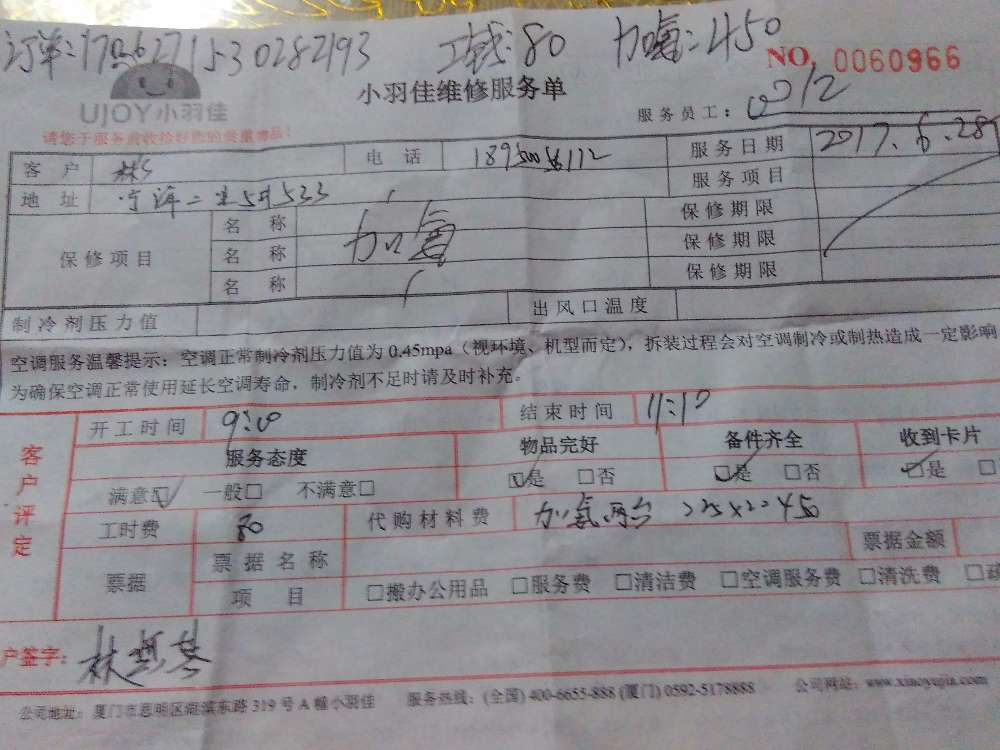 订单:1706271530282193 工钱:80 加氟:450
NO. 0060966
UJOY小羽佳
小羽佳维修服务单
服务员工:
请您于服务前收拾好您的贵重物品!
客户 林 电话 18950056112 服务日期 2017.6.28
地址 二 533 服务项目
保修项目 名称 加氟 保修期限
名称 保修期限
名称 保修期限
制冷剂压力值 出风口温度
空调服务温馨提示:空调正常制冷剂压力值为0.45mpa(视环境、机型而定),拆装过程会对空调制冷或制热造成一定影响
为确保空调正常使用延长空调寿命,制冷剂不足时请及时补充。
客户评定
开工时间 9:00 结束时间 11:10
服务态度 物品完好 备件齐全 收到卡片
满意☑ 一般□ 不满意□ ☑是 □否 ☑是 □否 ☑是 □
工时费 80 代购材料费 加氟两台 225×2=450
票据 票据名称 票据金额
项目 □搬办公用品 □服务费 □清洁费 □空调服务费 □清洗费 □
户签字: 林
公司地址:厦门市思明区湖滨东路319号A幢小羽佳 服务热线:(全国)400-6655-888(厦门)0592-5178888 公司网站:www.xiaoyujia.com